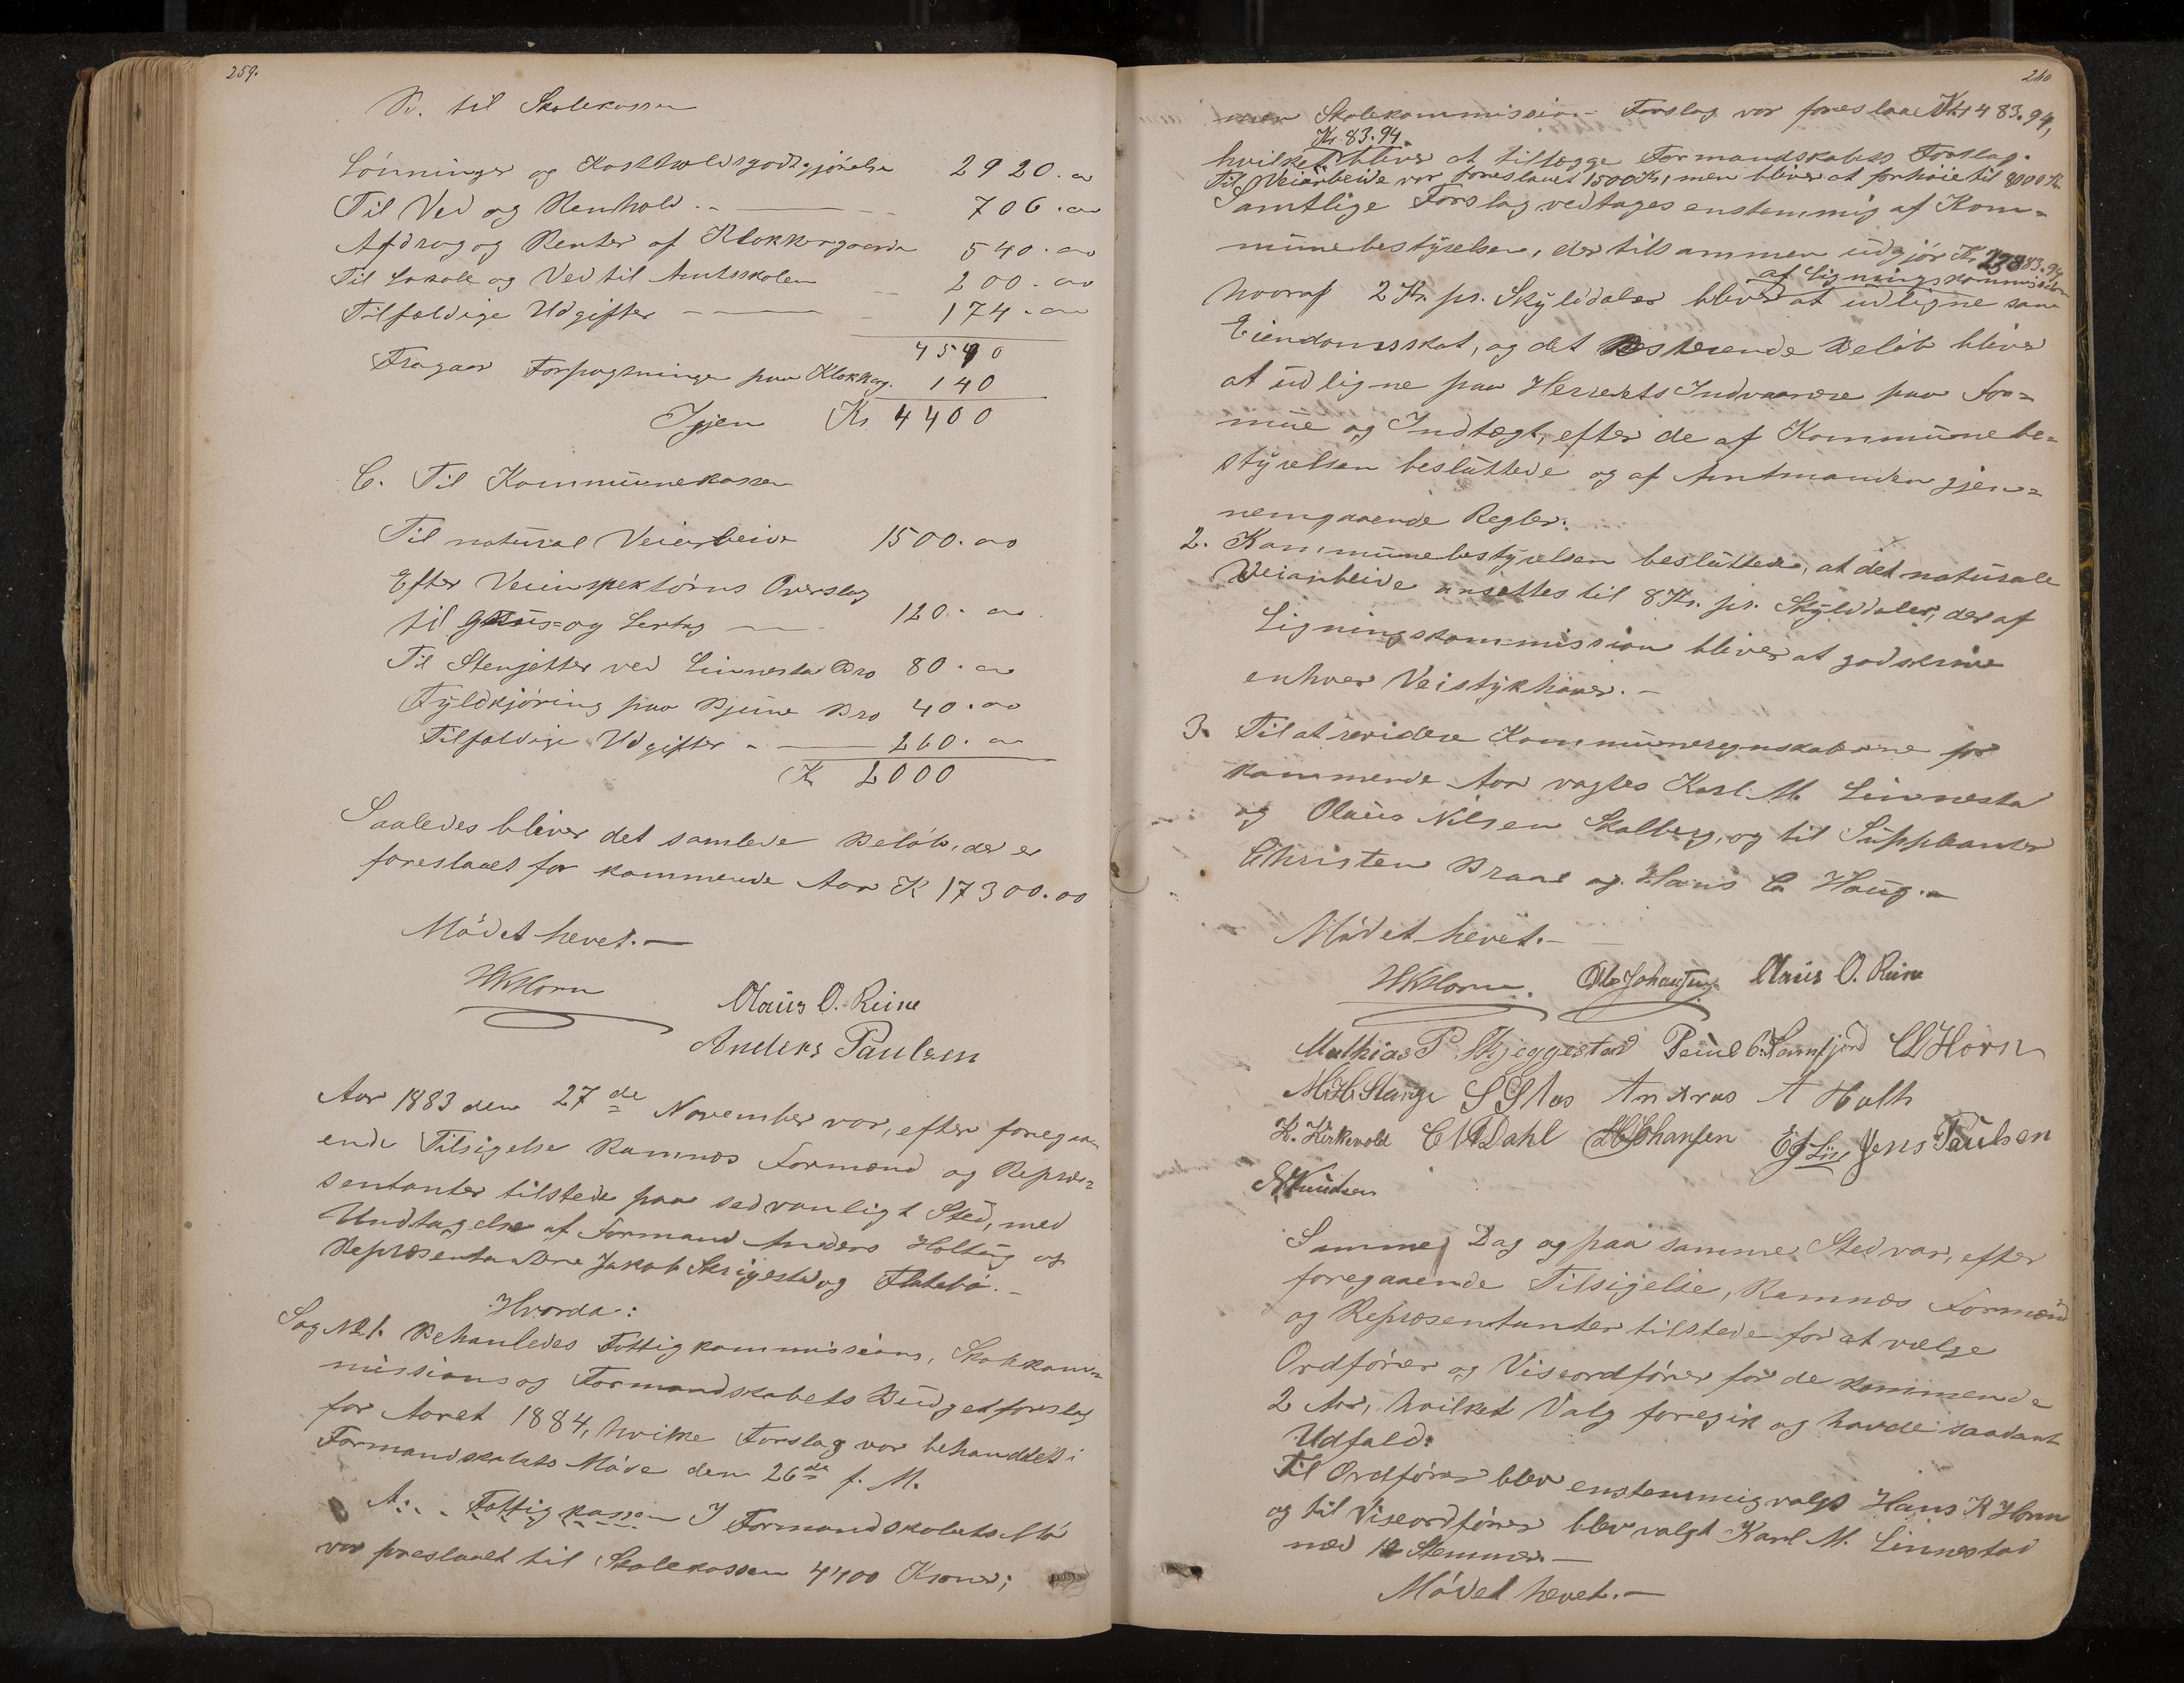 259.
B. til Skolekassen
Lønninger og Kostholdsgodtgjørelse 2920.00
Til Ved og Renhold 706.00
Afdrag og Renter af Klokkergaarden 540.00
Til Lokale og Ved til Amtsskolen 200.00
Tilfældige Udgifter 174.00
4540
Fragaar Forpagtningen paa Klokkerg. 140
Igjen Kr 4400
C. Til Kommunekassen
Til natural Veiarbeide 1500.00
Efter Veiinspektørens Overslag
til Grus= og Lertag 120.00
Til Stenjetter ved Linnestad Bro 80.00
Fyldkjøring paa Bjune Bro 40.00
Tilfældige Udgifter 260.00
Kr 2000
Saaledes bliver det samlede Beløb, der er
foreslaaet for kommende Aar K 17300.00
Mødet hævet.—
HKHorn
Olaus O. Reine
Anders Paulsen
Aar 1883 den 27de November var, efter foregaa-
ende Tilsigelse Ramnæs Formænd og Repræ=
sentanter tilstede paa sedvanligt Sted, med
Undtagelse af Formand Anders Holtung og
Repræsentanterne Jakob Skrigestad og Flatebø.—
Hvorda:
Sag No 1. Behandledes Fattigkommissions, Skolekom=
missions og Formandskabets Budgetforslag
for Aaret 1884, hvilke Forslag var behandlet i
Formandskabets Møde den 26de f. M.
A. Fattigkassen I Formandskabets Mø
var foreslaaet til Skolekassen 4400 Kroner;
260
men Skolekommission Forslag var foreslaaet Kr 4483.94,
Kr. 83.94.
hvilket bliver at tillægge Formandskabets Forslag.
Til Veiarbeide var foreslaaet 1500 Kr, men bliver at forhøie til 8000 Kr
Samtlige Forslag vedtages enstemmig af Kom=
munebestyrelsen, der tilsammen udgjør Kr 23883.94
af Ligningskommission
hvoraf 2 Kr. pr. Skylddaler bliver at udligne som
Eiendomsskat, og det Resterende Beløb bliver
at udligne paa Herredets Indvaanere paa For=
mue og Indtægt, efter de af Kommunebe=
styrelsen besluttede og af Amtmanden gjen=
nemgaaende Regler.
2. Kommunebestyrelsen besluttede, at det naturale
Veiarbeide ansættes til 8 Kr. pr. Skylddaler, der af
Ligningskommission bliver at godskrive
enhver Veistykhaver.—
3. Til at revidere Kommuneregnskaberne for
kommende Aar valgtes Karl M. Linnestad
og Olaus Nilsen Skalberg, og til Suppleanter
Christen Braae og Hans C. Haug.
Mødet hævet.—
HKHorn. Ole Johansen Olaus O. Reine
Mathias P. Skjeggestad Paul C. Sannfjord CL Horn
M.H. Stange S S Aas Andreas A Holth
K. Kirkevold C M Dahl Johansen Jens Paulsen
Knudsen
Samme Dag og paa samme Sted var, efter
foregaaende Tilsigelse, Ramnæs Formænd
og Repræsentanter tilstede for at vælge
Ordfører og Viseordfører for de kommende
2 Aar, hvilket Valg foregik og havde saadant
Udfald:
Til Ordfører blev enstemmig valgt Hans K Horn
og til Viseordfører blev valgt Karl M. Linnestad
med 12 Stemmer.—
Mødet hævet.—